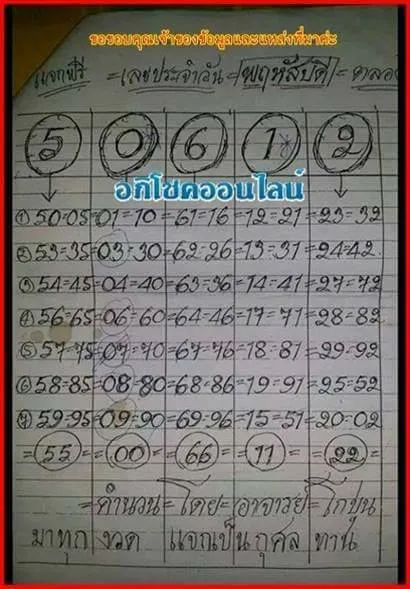 ขอขอบคุณเจ้าของข้อมูลและแหล่งที่มาค่ะ
แจกฟรี =เลขประจำวัน=พฤหัสบดี= ตลอด
5 0 6 1 2
อภิโชคออนไลน์
① 50=05=01=10=61=16=12=21=23=32
② 53=35=03=30=62=26=13=31=24=42
③ 54=45=04=40=63=36=14=41=27=72
④ 56=65=06=60=64=46=17=71=28=82
⑤ 57=75=07=70=67=76=18=81=29=92
⑥ 58=85=08=80=68=86=19=91=25=52
⑦ 59=95=09=90=69=96=15=51=20=02
=55=00=66=11=22=
=คำนวน=โดย=อาจารย์=โกปุน
มาทุก งวด แจกเป็น กุศล ทาน